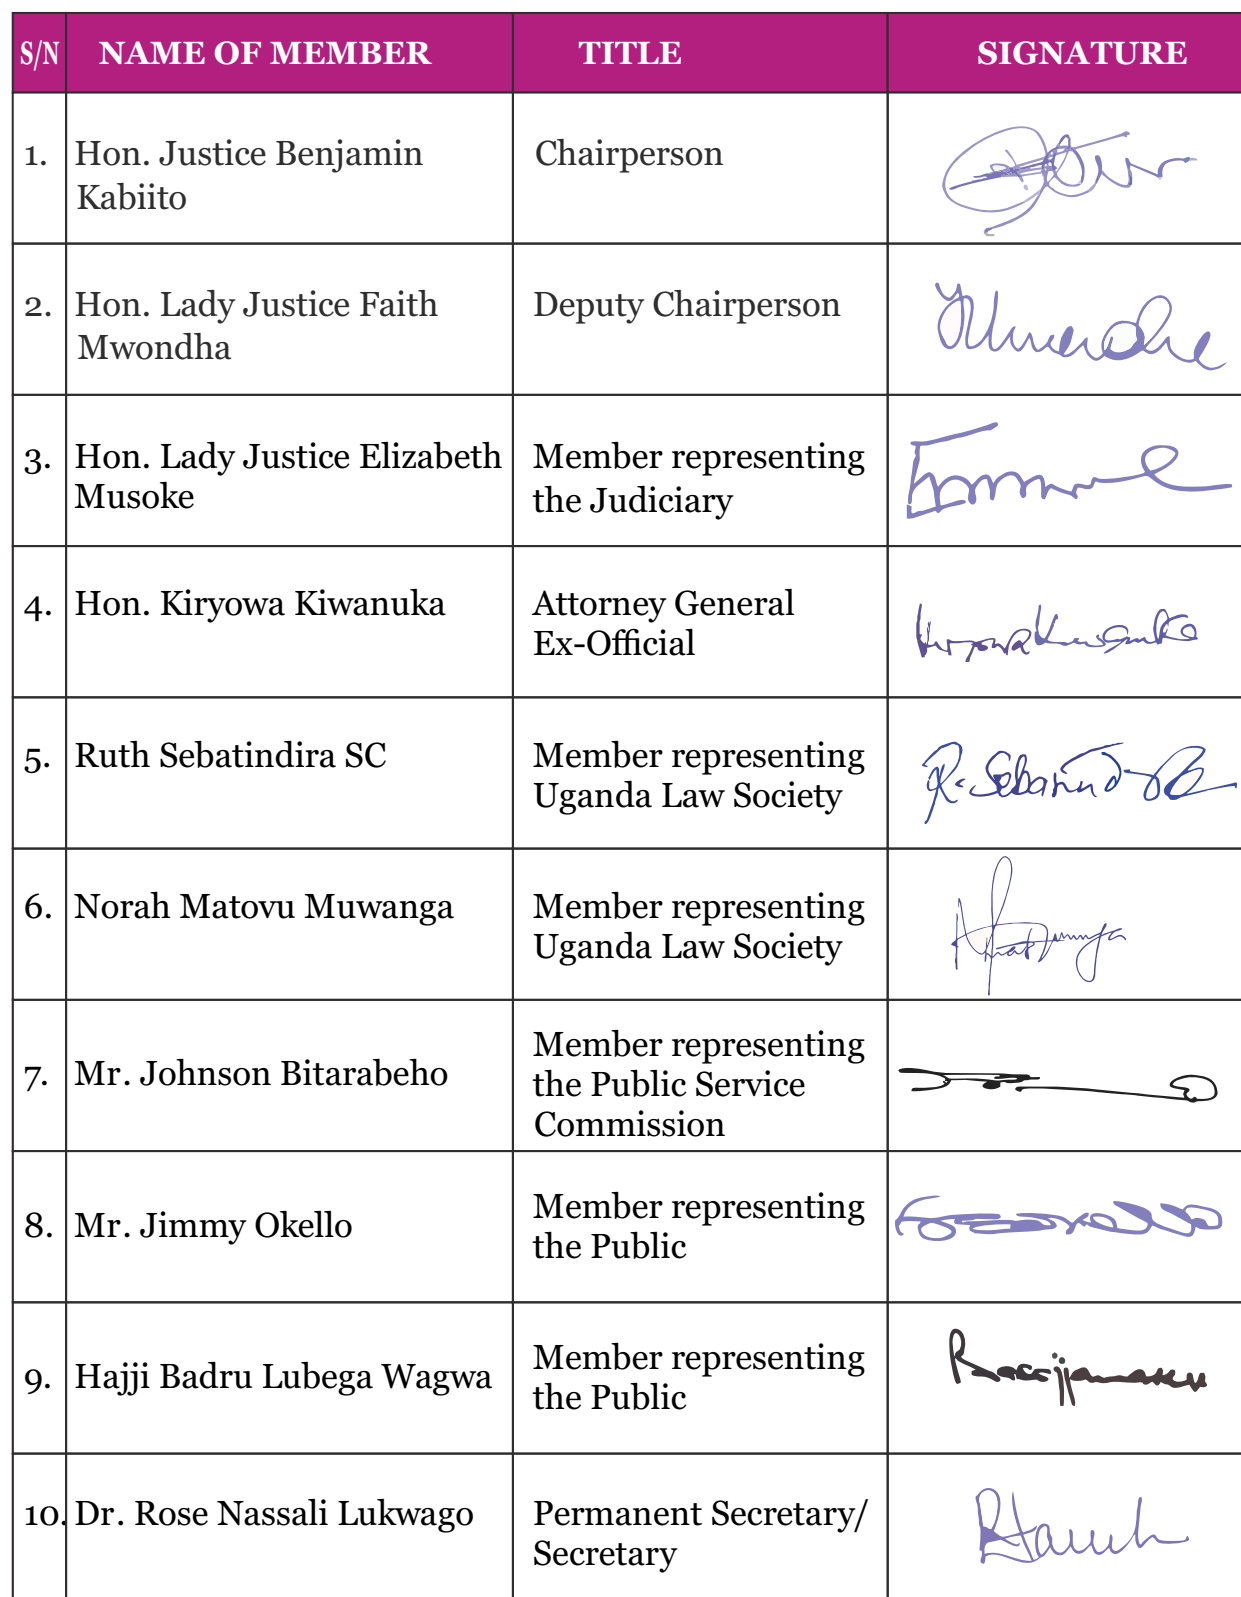 S/N NAME OF MEMBER TITLE SIGNATURE
1. Hon. Justice Benjamin Chairperson
Kabiito
2. Hon. Lady Justice Faith Deputy Chairperson
Mwondha
3. Hon. Lady Justice Elizabeth Member representing
Musoke the Judiciary
4. Hon. Kiryowa Kiwanuka Attorney General
Ex-Official
5. Ruth Sebatindira SC Member representing
Uganda Law Society
6. Norah Matovu Muwanga Member representing
Uganda Law Society
7. Mr. Johnson Bitarabeho Member representing
the Public Service
Commission
8. Mr. Jimmy Okello Member representing
the Public
9. Hajji Badru Lubega Wagwa Member representing
the Public
10. Dr. Rose Nassali Lukwago Permanent Secretary/
Secretary